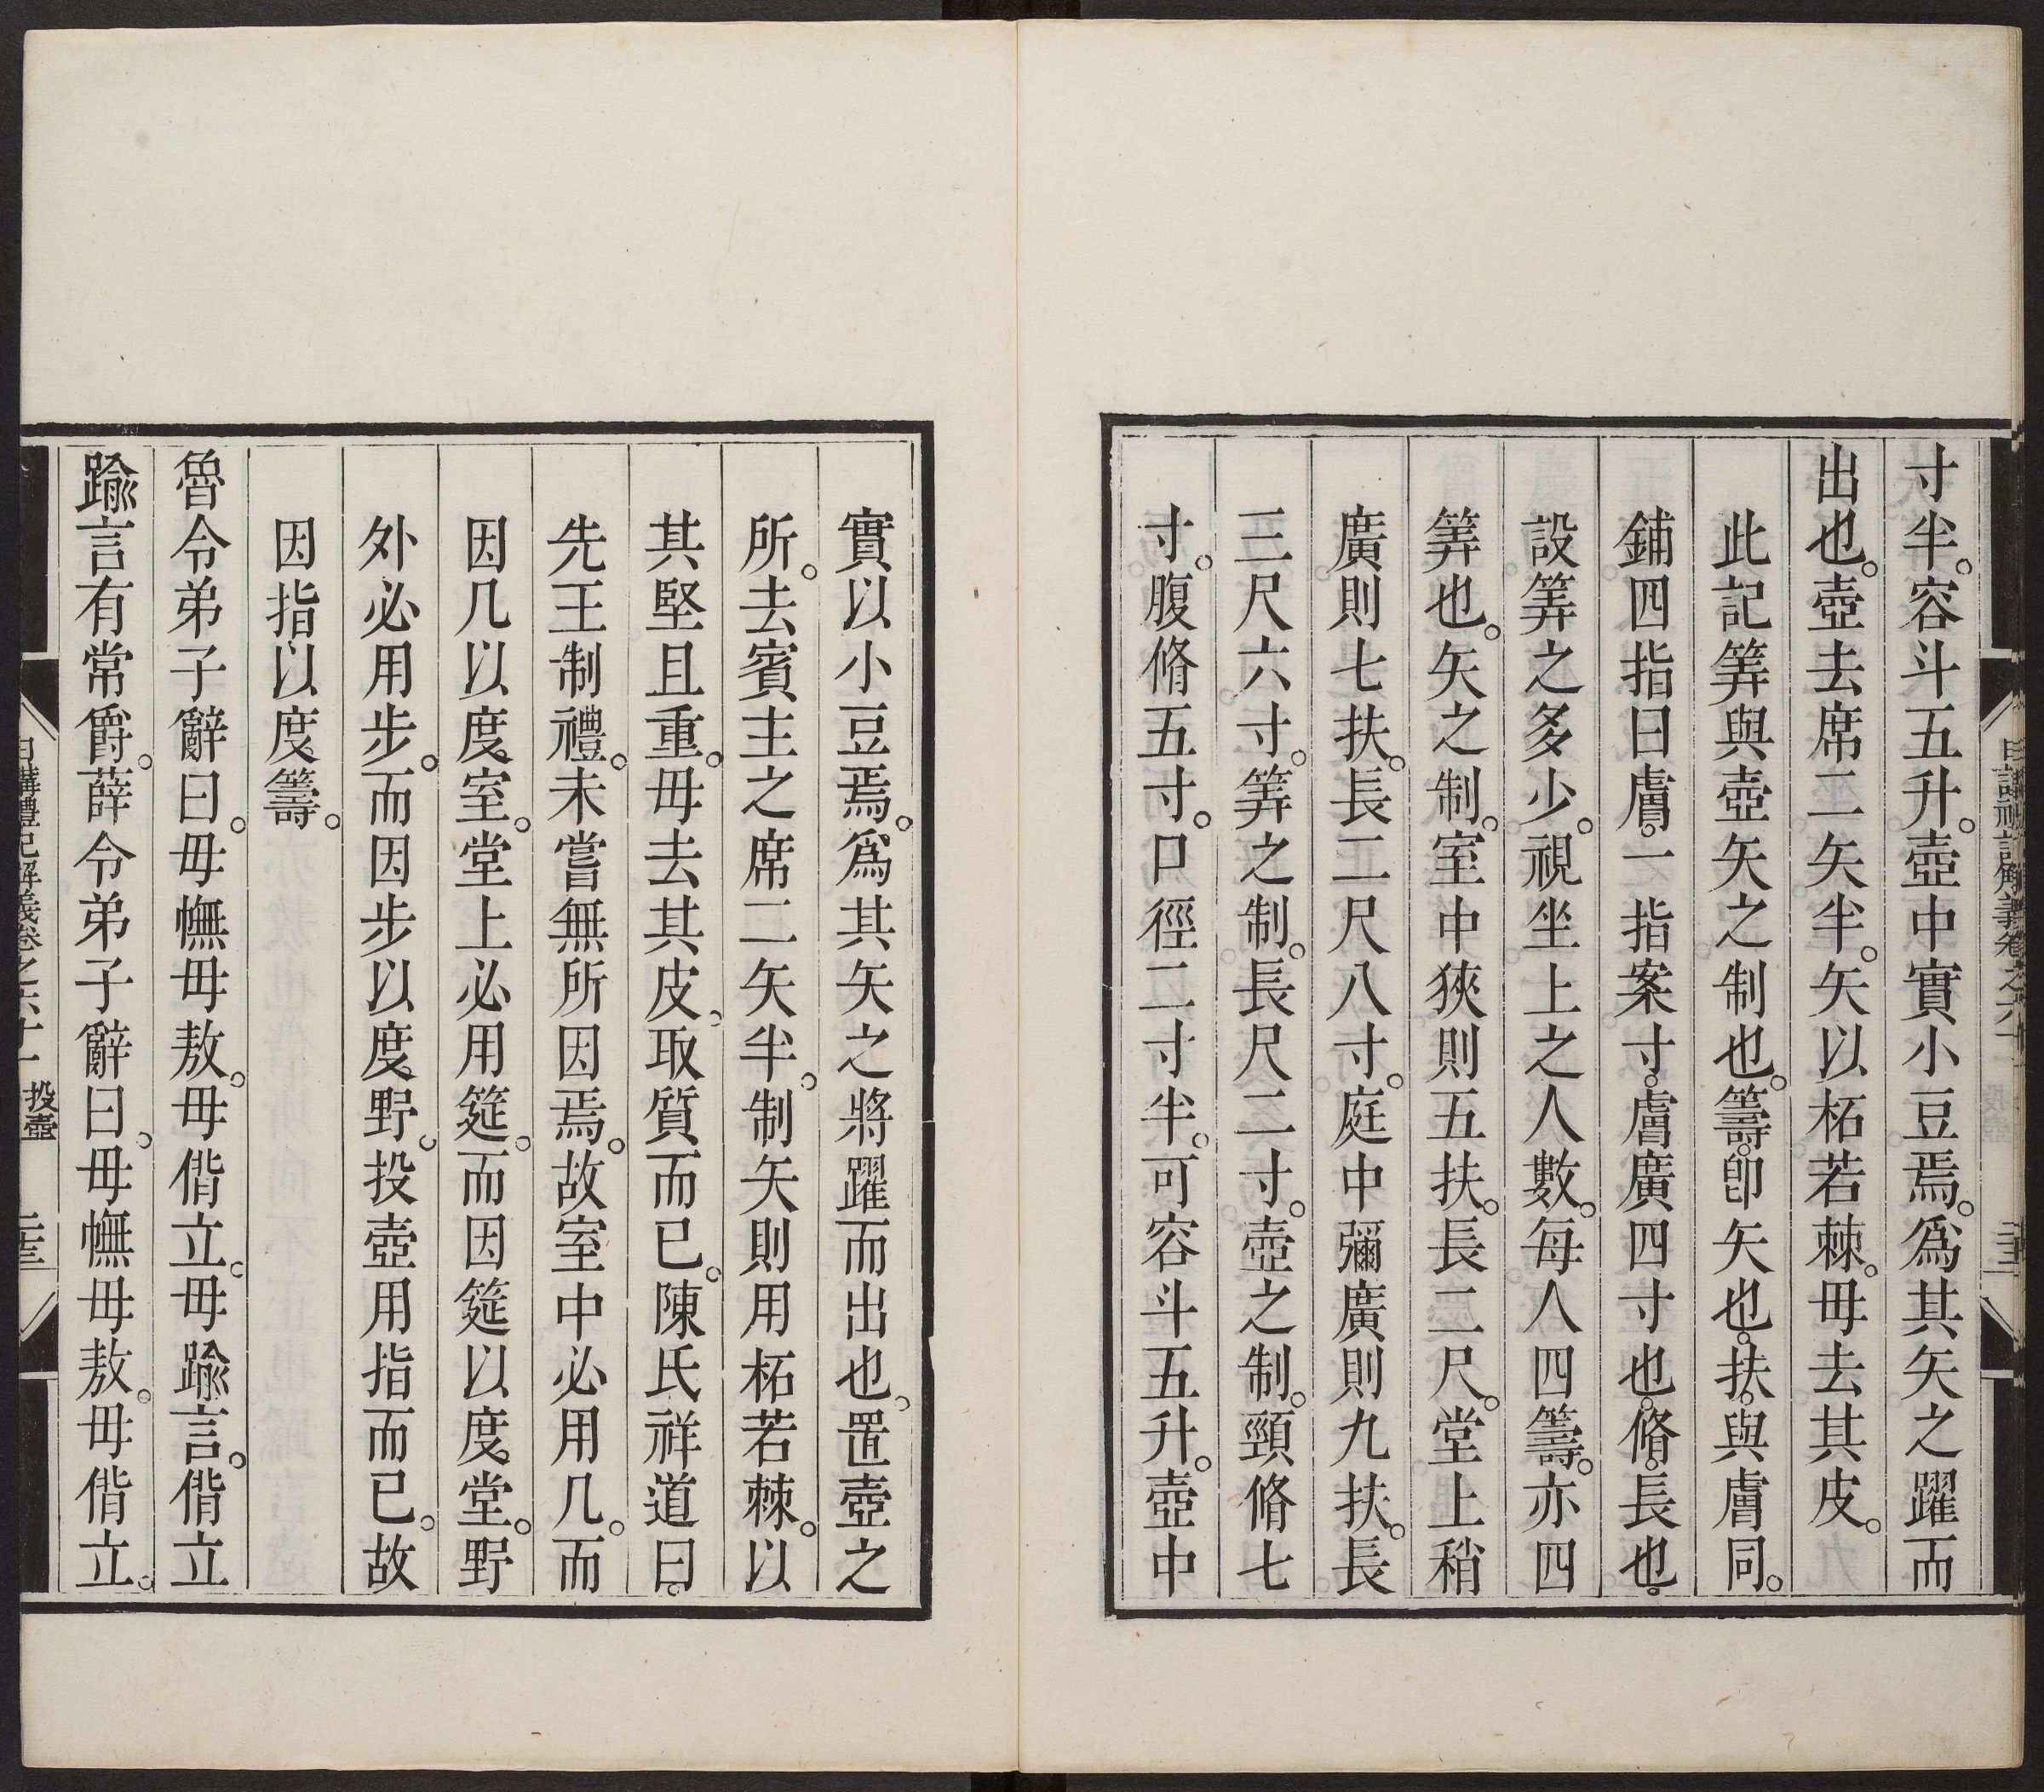 寸半。容斗五升。壺中實小豆焉。爲其矢之躍而
出也。壺去席二矢半。矢以柘若棘。毋去其皮。
此記筭與壺矢之制也。籌。卽矢也。扶。與膚同。
鋪四指曰膚。一指案寸。膚廣四寸也。脩。長也。
設筭之多少。視坐上之人數。每人四籌。亦四
筭也。矢之制。室中狹則五扶。長二尺。堂上稍
廣則七扶。長二尺八寸。庭中彌廣則九扶。長
三尺六寸。筭之制。長尺二寸。壺之制。頸脩七
寸。腹脩五寸。口徑二寸半。可容斗五升。壺中
實以小豆焉。爲其矢之將躍而出也。置壺之
所。去賓主之席二矢半。制矢則用柘若棘。以
其堅且重。毋去其皮。取質而已。陳氏祥道曰。
先王制禮。未嘗無所因焉。故室中必用几。而
因几以度室。堂上必用筵。而因筵以度堂。野
外必用步。而因步以度野。投壺用指而已。故
因指以度籌。
魯令弟子辭曰。毋幠毋敖。毋偕立。毋踰言。偕立
踰言有常爵。薛令弟子辭曰。毋幠毋敖。毋偕立。
日講禮記解義卷之六十一 投壺